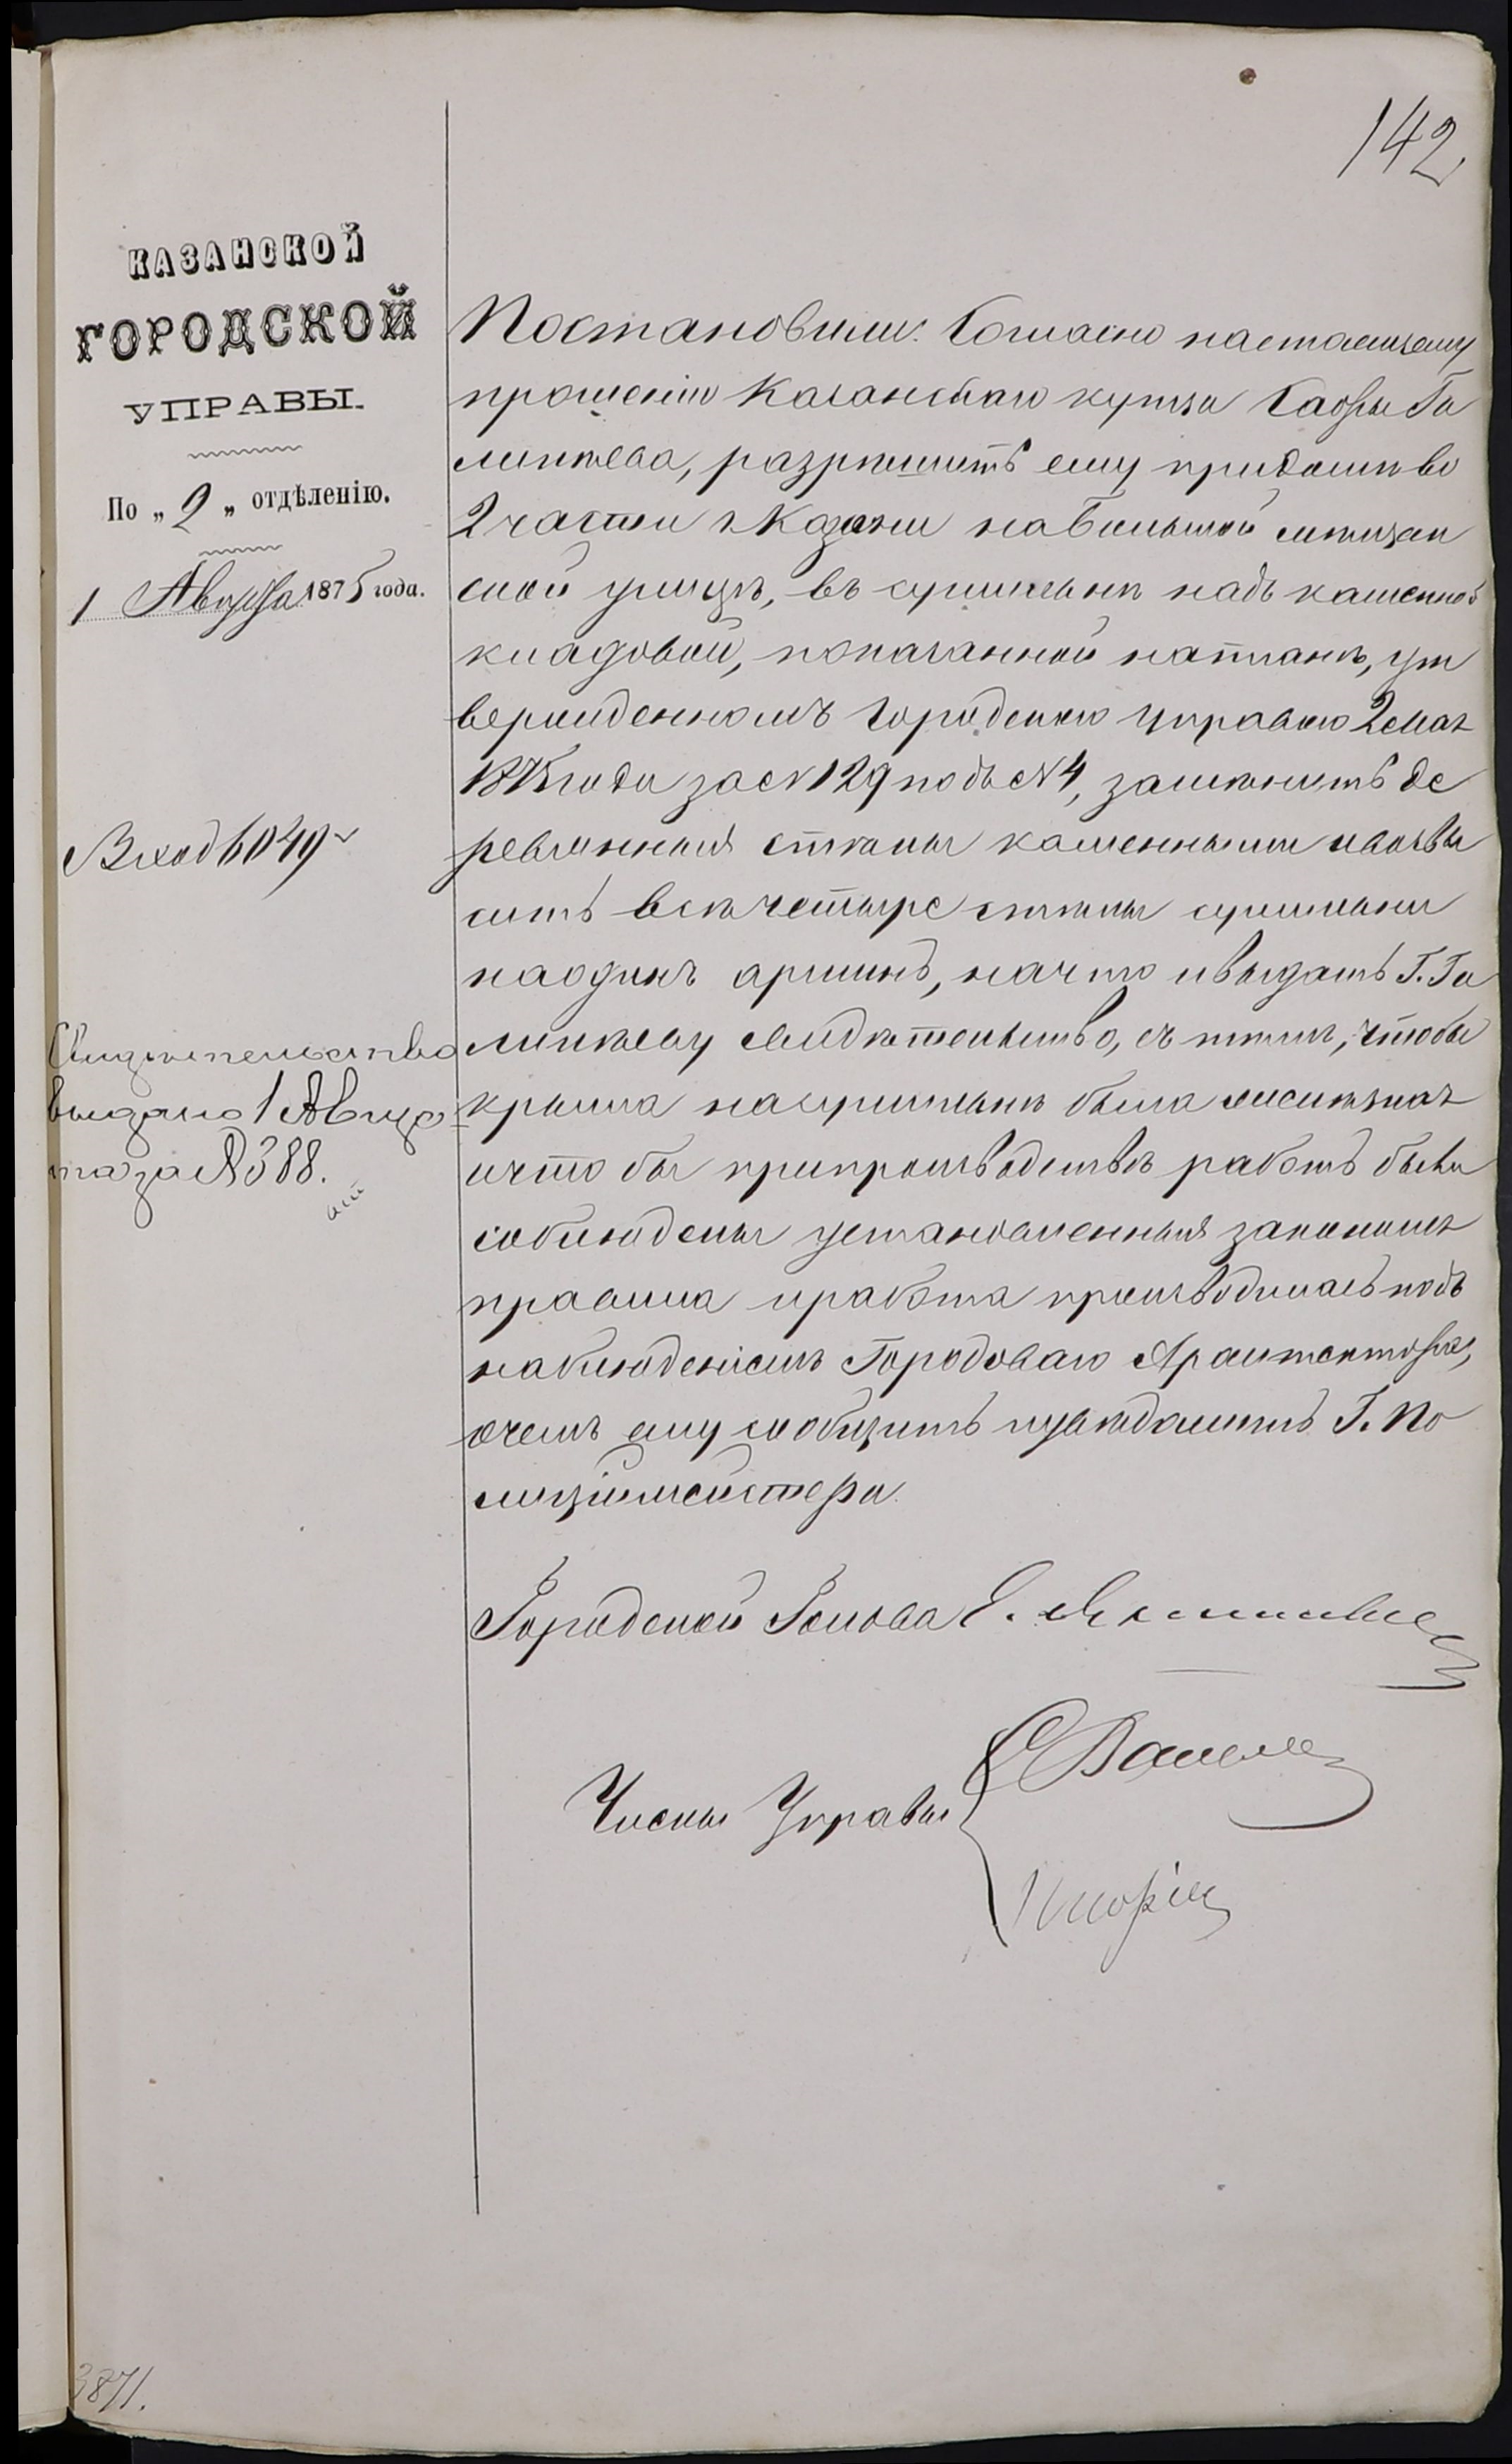 142
КАЗАНСКОЙ
ГОРОДСКОЙ
УПРАВЫ.
По „2„ отдѣленію.
1 Августа 1875 года.
Вход 6049
Свидѣтельство
выдано 1 Авгус-
та за № 388.
Постановили: Согласно настоящему
прошенію Казанскаго купца Садры Га
ликѣева, разрѣшить ему при домѣ во
2 части г. Казани на Большой мѣщан
ской улицѣ, въ сушильнѣ надъ каменной
кладовой, показанной на планѣ, ут
вержденномъ Городскою Управою 2 мая
1875 года за № 129 подъ № 4, замѣнить де
ревянныя стѣны каменными и возвы
сить всѣ четыре стѣны сушильни
на одинъ аршинъ, на что и выдать Г. Га
ликѣеву свидѣтельство, съ тѣмъ, чтобы
крыша на сушильнѣ была желѣзная
и что бы при производствѣ работъ были
соблюдены установленныя закономъ
правила и работа производилась подъ
наблюденіемъ Городоваго Архитектора,
о чемъ ему сообщить и увѣдомить Г. По
лиціймейстера.
Городской Голова Е.
Члены Управы
3871.